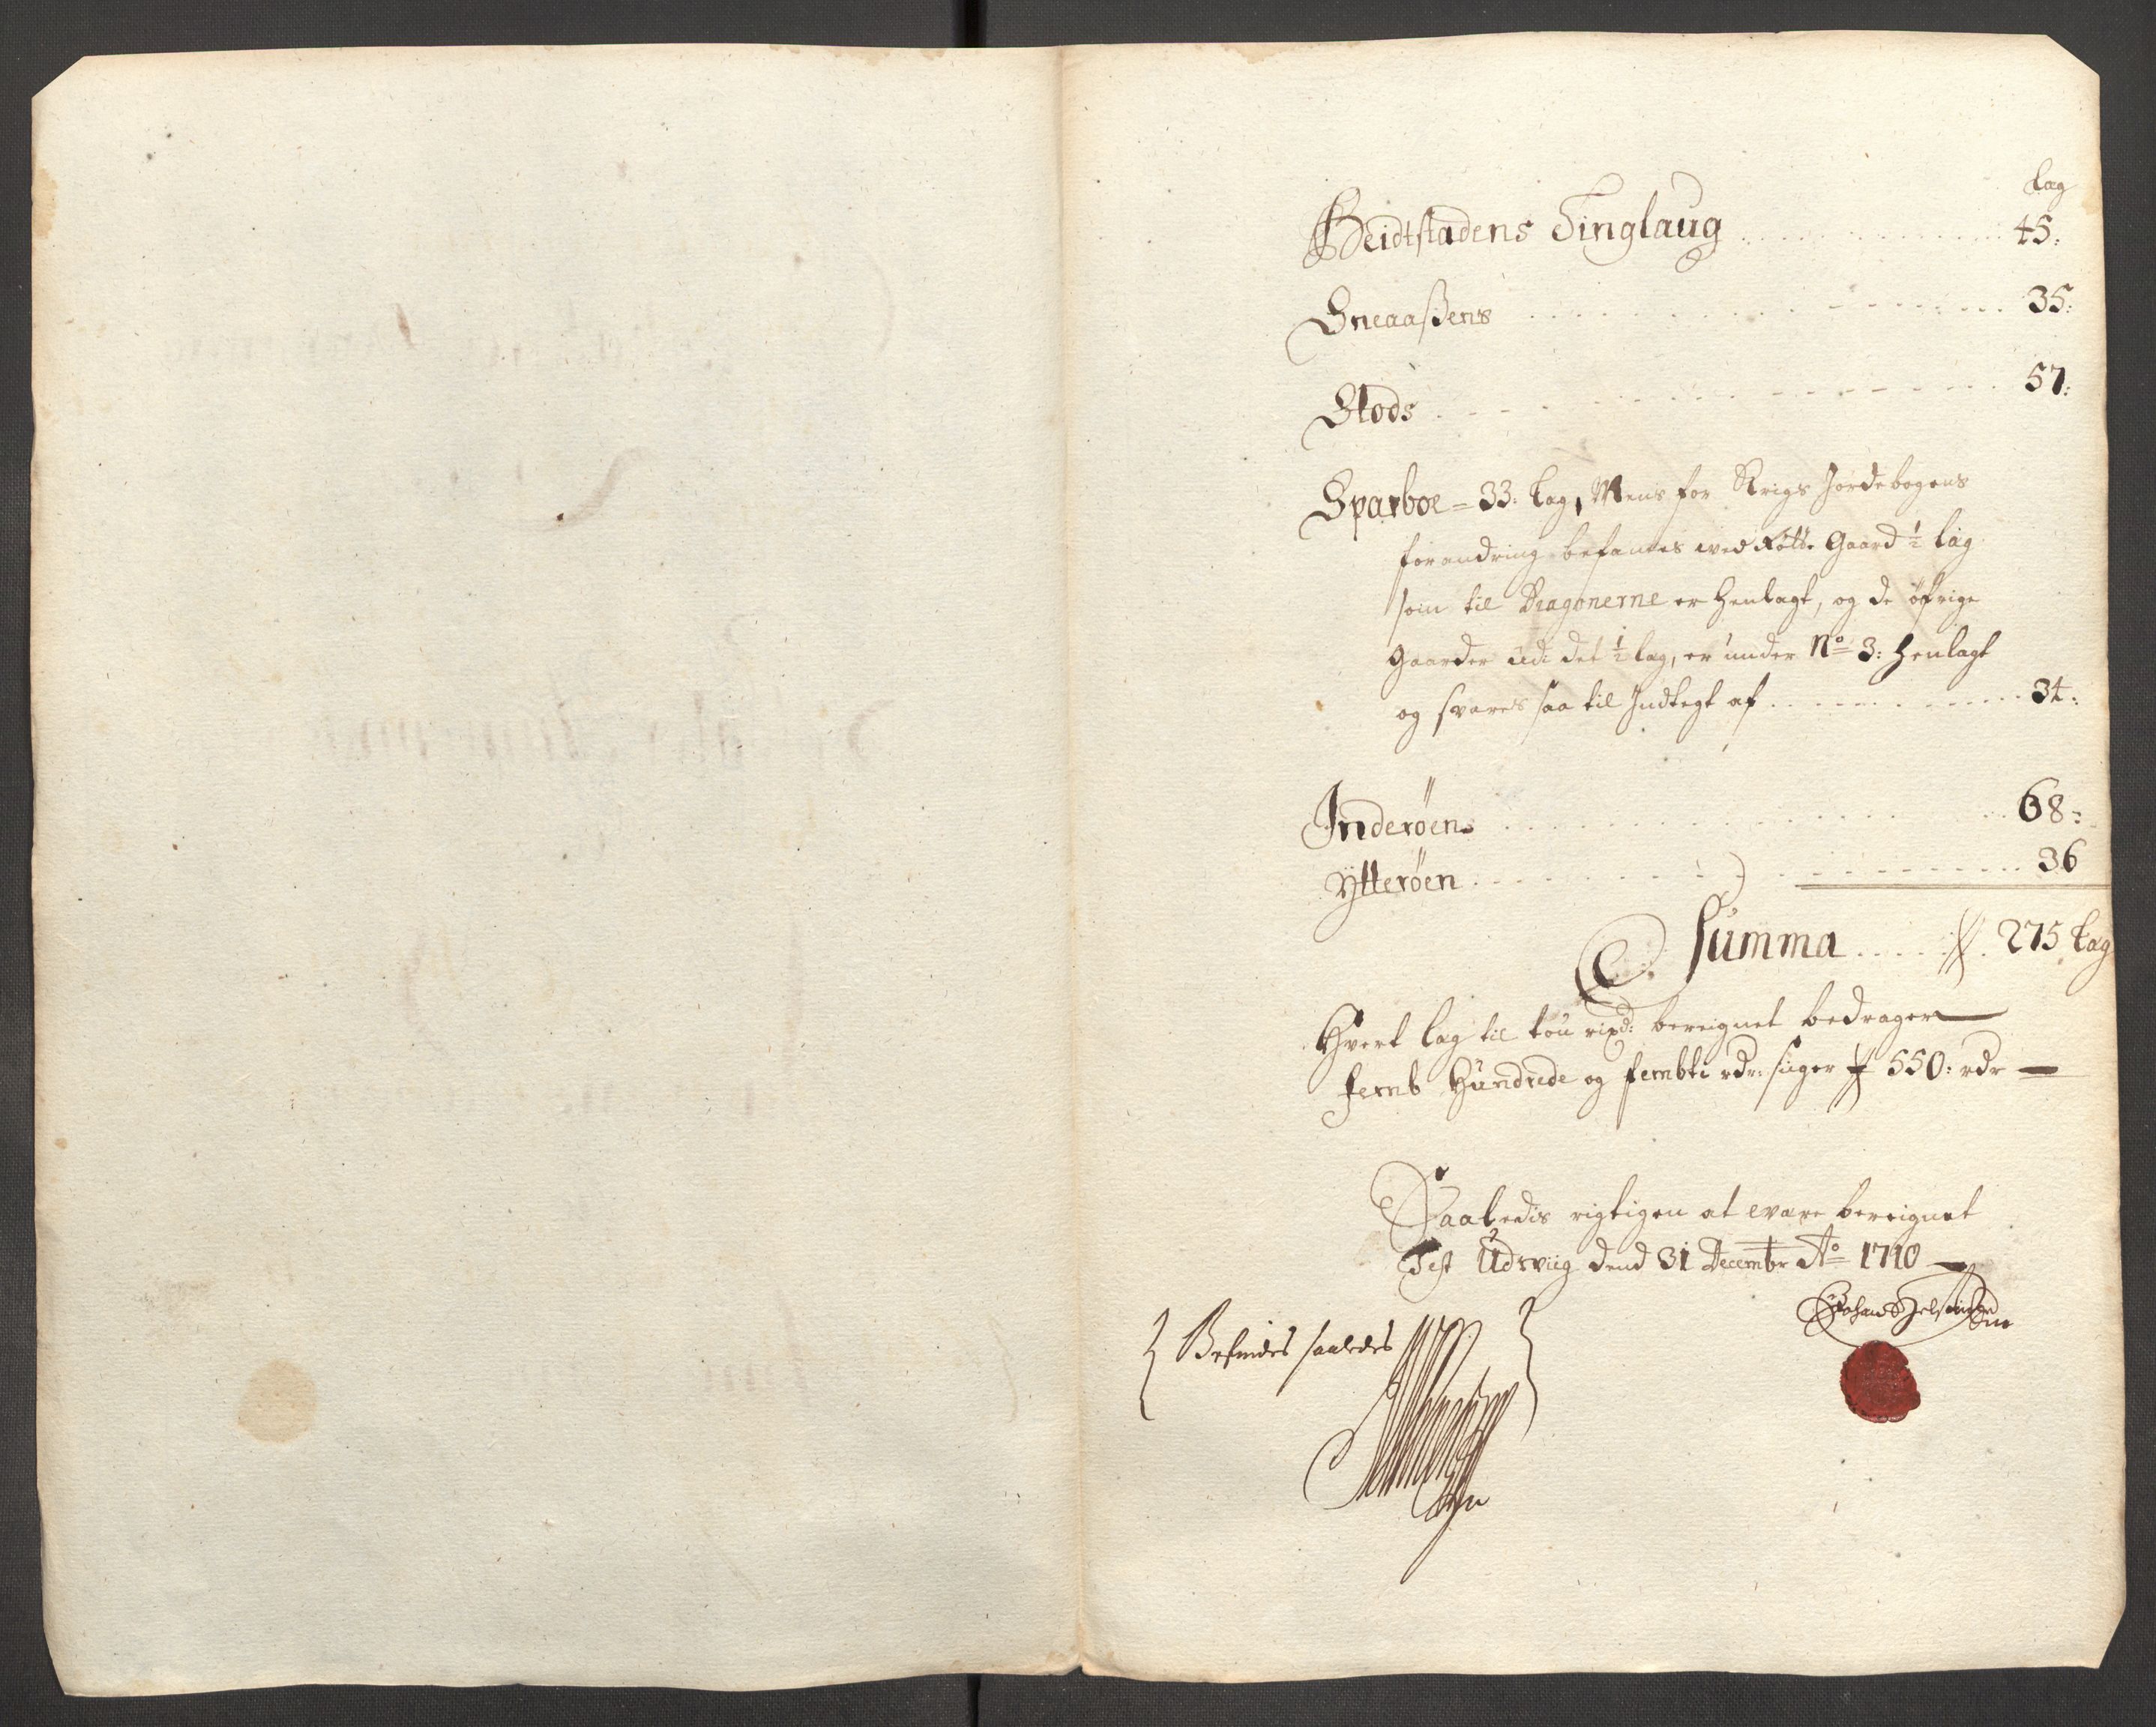 Lag
Beidtstadens Tinglaug 45:
Sneaaßens 35:
Stods 57:
Sparboe = 33: lag, Mens for Krigs Jordebogens
forandring befantes wed Gaard ½ lag
som til Dragonerne er henlagt, og de öfrige
Gaarder udi det ½ lag, er under No 3: henlagt
og svares saa til Indtegt af 34:
Inderöens 68:
Ytteröen 36
Summa 275 Lag
Hvert lag til tou rixd: bereignet bedrager
femb Hundrede og fembti rdr: siger 550: rdr
Saaledis rigtigen at være bereignet
Test Udsviig dend 31 Decembr Ao 1710
Befindes saaledes